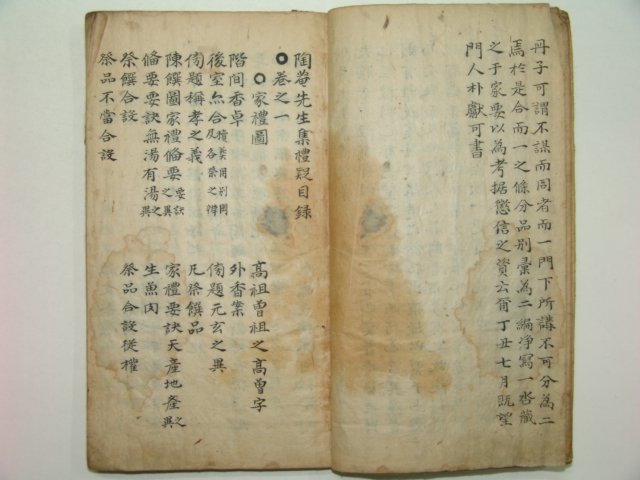 丹子可謂不謀而同者而一門下所講不可分為二
焉於是合而一之條分品別彙為二編淨寫一呇藏
之于家要以為考据懲信之資云爾丁丑七月旣望
門人朴獻可書
陶菴先生集禮疑目録
卷之一
家禮圖
高祖曾祖之高曾字
階間香卓
外香案
後室
各祭之
傍題稱孝之義
傍題元玄之異
凡祭饌品
陳饌圖家禮俻要要訣之異
家禮要訣天産地產之異
俻要要訣無湯有湯之異
生魚肉
祭饌合設
祭品合設從權
祭品不當合設